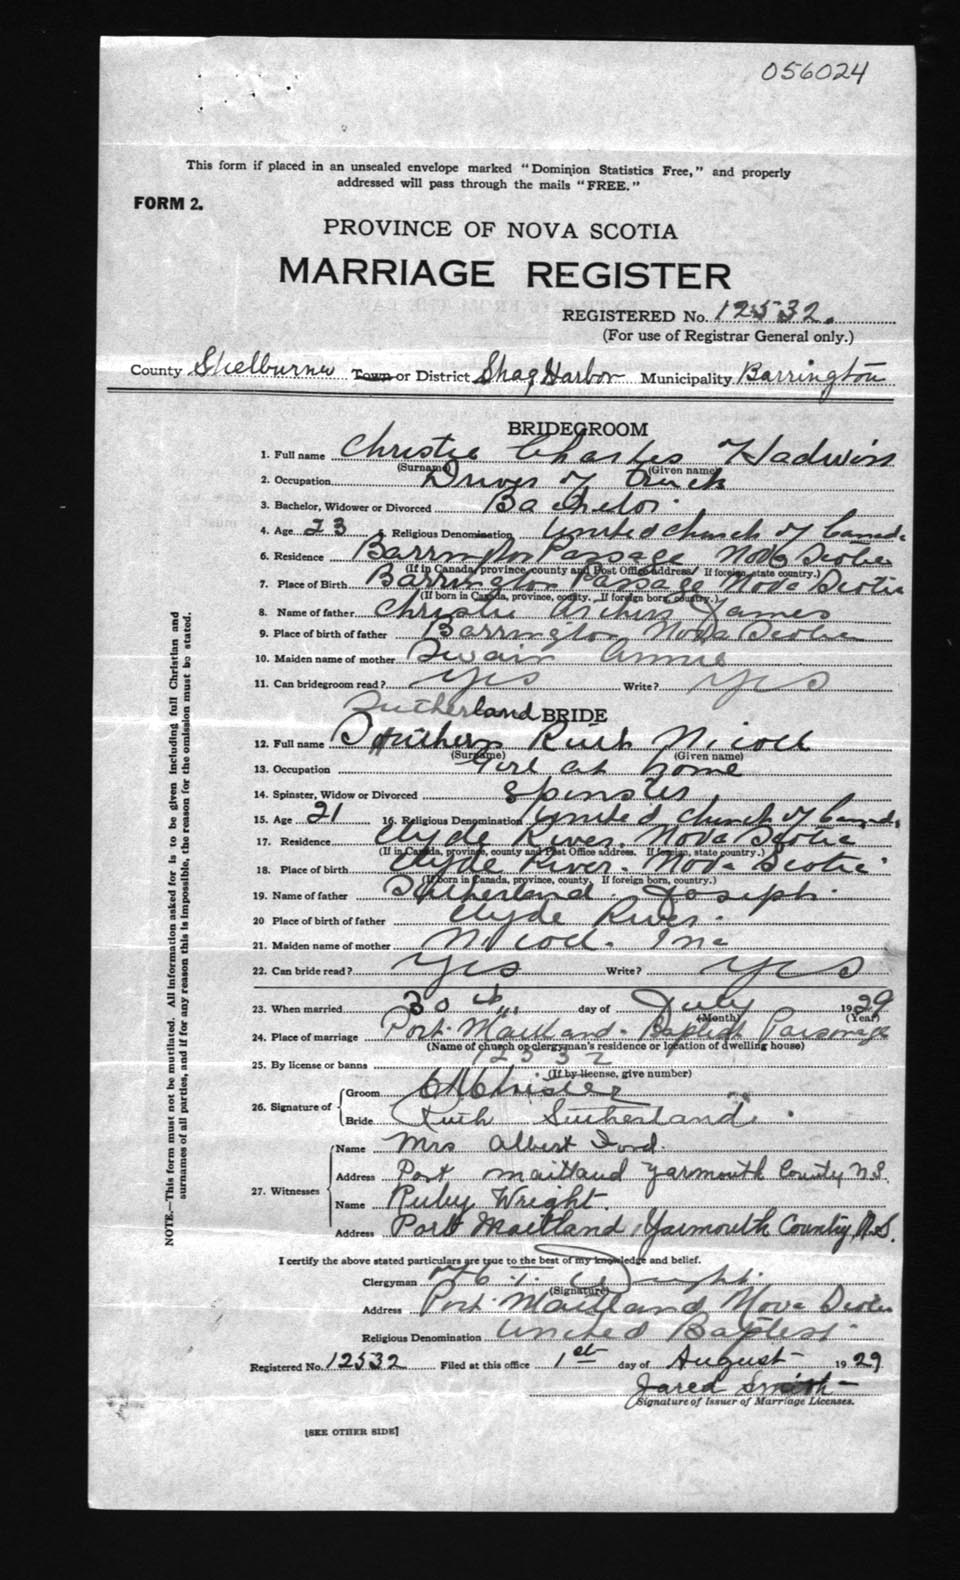 056024
This form if placed in an unsealed envelope marked "Dominion Statistics Free," and properly
addressed will pass through the mails "FREE."
FORM 2.
PROVINCE OF NOVA SCOTIA
MARRIAGE REGISTER
REGISTERED No. 12532.
(For use of Registrar General only.)
County Shelburne Town or District Shag Harbor Municipality Barrington
BRIDEGROOM
1. Full name Christie Charles Hadwin
(Surname) (Given name)
2. Occupation Driver of Truck
3. Bachelor, Widower or Divorced Bachelor
4. Age 23 5. Religious Denomination United Church of Canada
6. Residence Barrington Passage Nova Scotia
(If in Canada, province, county and Post Office address. If foreign, state country.)
7. Place of Birth Barrington Passage Nova Scotia
(If born in Canada, province, county. If foreign born, country.)
8. Name of father Christie James
9. Place of birth of father Barrington Nova Scotia
10. Maiden name of mother Swain Annie
11. Can bridegroom read? Yes Write? Yes
Sutherland BRIDE
12. Full name Ruth Nicoll
(Surname) (Given name)
13. Occupation Girl at home
14. Spinster, Widow or Divorced Spinster
15. Age 21 16. Religious Denomination United Church of Canada
17. Residence Clyde River. Nova Scotia
(If in Canada, province, county and Post Office address. If foreign, state country.)
18. Place of birth Clyde River. Nova Scotia
(If born in Canada, province, county. If foreign born, country.)
19. Name of father Sutherland Joseph.
20 Place of birth of father Clyde River.
21. Maiden name of mother Nicoll. Ina
22. Can bride read? Yes Write? Yes
23. When married 30th day of July 1929
(Month) (Year)
24. Place of marriage Port Maitland - Baptist Parsonage
(Name of church or clergyman's residence or location of dwelling house)
25. By license or banns 12532
(If by license, give number)
26. Signature of Groom C H Christie
Bride Ruth Sutherland.
27. Witnesses Name Mrs Albert Ford.
Address Port Maitland Yarmouth County N.S.
Name Ruby Wright.
Address Port Maitland, Yarmouth County N.S.
I certify the above stated particulars are true to the best of my knowledge and belief.
Clergyman Wright.
(Signature)
Address Port Maitland Nova Scotia
Religious Denomination United Baptist
Registered No. 12532 Filed at this office 1st day of August 1929
Jared Smith
Signature of Issuer of Marriage Licenses.
[SEE OTHER SIDE]
NOTE.—This form must not be mutilated. All information asked for is to be given including full Christian and
surnames of all parties, and if for any reason this is impossible, the reason for the omission must be stated.